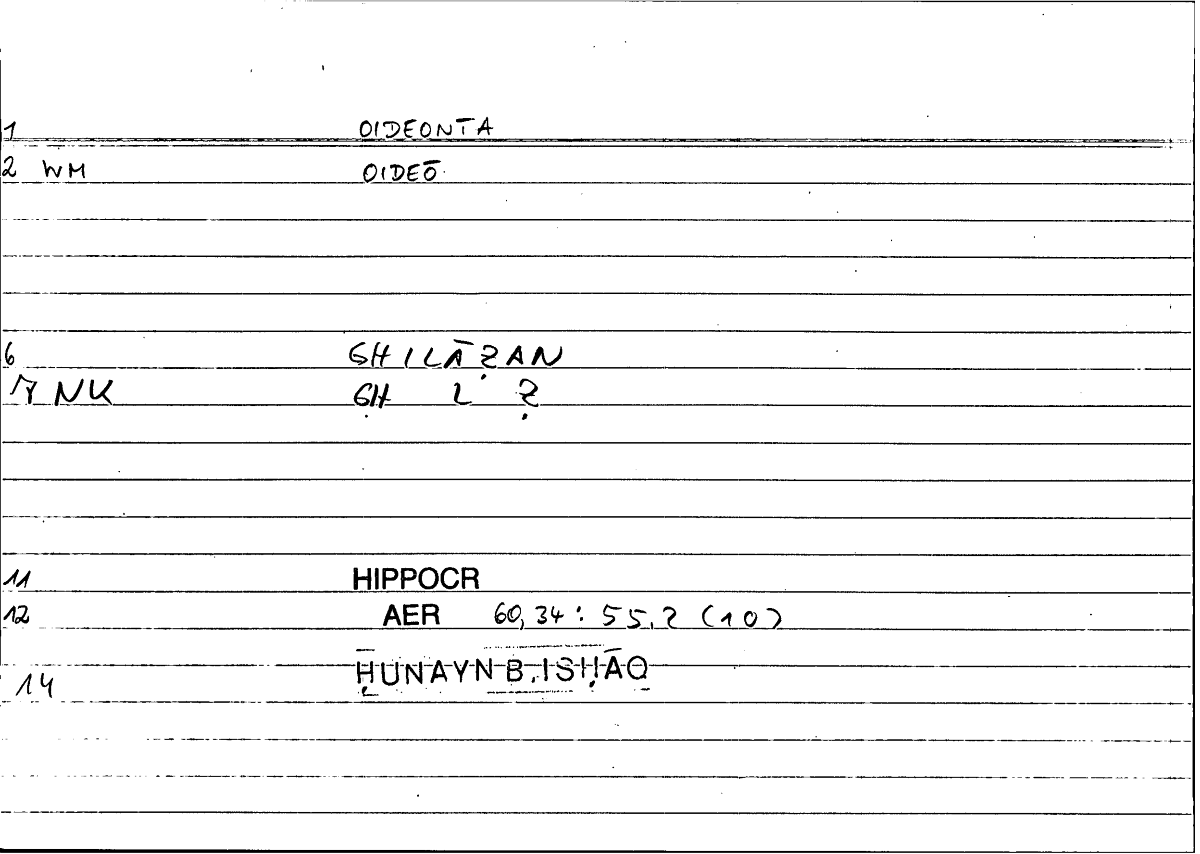 1 OIDEONTA
2 WM OIDEŌ
6 GHILĀẒAN
7 NK GH L Ẓ
11 HIPPOCR
12 AER 60,34 : 55,2 (10)
14 ḤUNAYN B. ISḤĀQ